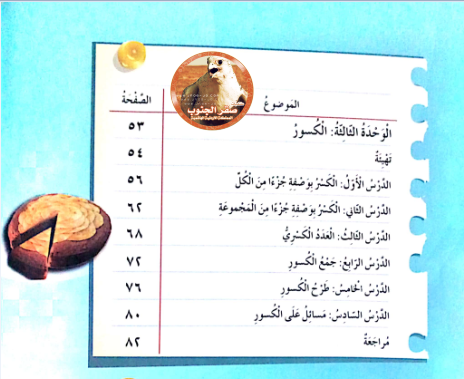 الصَّفْحَةُ المَوضوعُ
صقر الجنوب
الْوَحْدَةُ الثّالِثَةُ: الْكُسورُ ٥٣
تَهْيِئَةٌ ٥٤
الدَّرْسُ الْأَوَّلُ: الْكَسْرُ بِوَصْفِهِ جُزْءًا مِنَ الْكُلِّ ٥٦
الدَّرْسُ الثّاني: الْكَسْرُ بِوَصْفِهِ جُزْءًا مِنَ الْمَجْموعَةِ ٦٢
الدَّرْسُ الثّالثُ: الْعَدَدُ الْكَسْرِيُّ ٦٨
الدَّرْسُ الرّابِعُ: جَمْعُ الْكُسورِ ٧٢
الدَّرْسُ الْخامِسُ: طَرْحُ الْكُسورِ ٧٦
الدَّرْسُ السّادِسُ: مَسائِلُ عَلَى الْكُسورِ ٨٠
مُراجَعَةٌ ٨٢